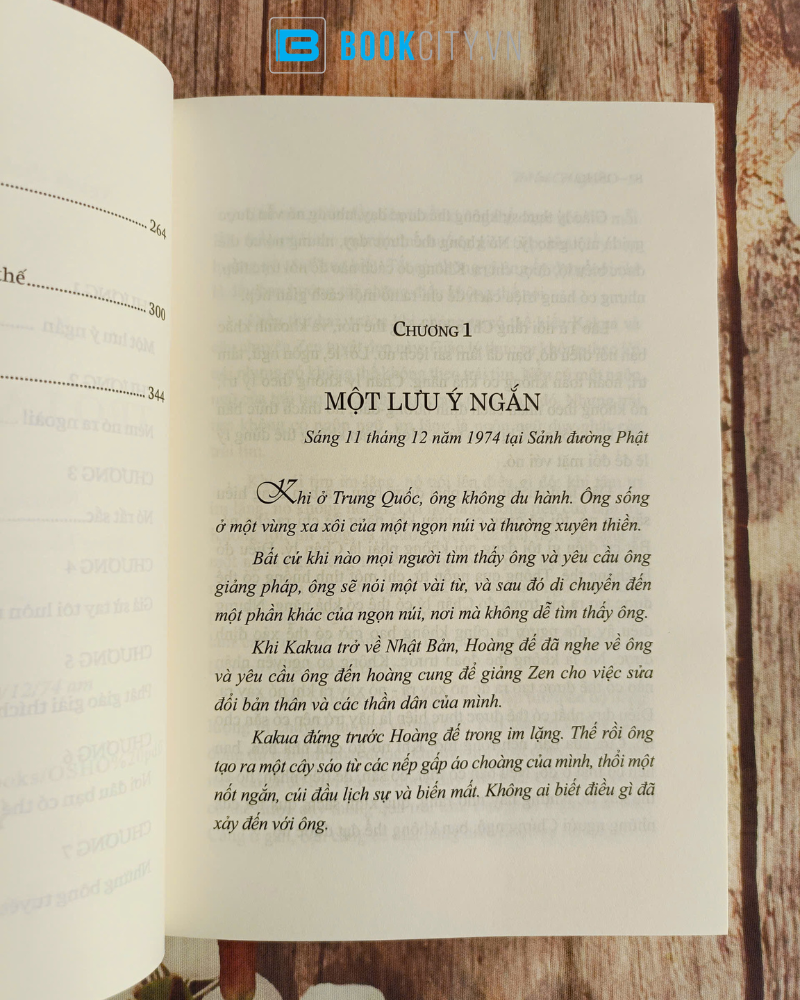 BOOKCITY.VN
264
thế
300
344
CHƯƠNG 1
MỘT LƯU Ý NGẮN
Sáng 11 tháng 12 năm 1974 tại Sảnh đường Phật
Khi ở Trung Quốc, ông không du hành. Ông sống
ở một vùng xa xôi của một ngọn núi và thường xuyên thiền.
Bất cứ khi nào mọi người tìm thấy ông và yêu cầu ông
giảng pháp, ông sẽ nói một vài từ, và sau đó di chuyển đến
một phần khác của ngọn núi, nơi mà không dễ tìm thấy ông.
Khi Kakua trở về Nhật Bản, Hoàng đế đã nghe về ông
và yêu cầu ông đến hoàng cung để giảng Zen cho việc sửa
đổi bản thân và các thần dân của mình.
Kakua đứng trước Hoàng đế trong im lặng. Thế rồi ông
tạo ra một cây sáo từ các nếp gấp áo choàng của mình, thổi một
nốt ngắn, cúi đầu lịch sự và biến mất. Không ai biết điều gì đã
xảy đến với ông.